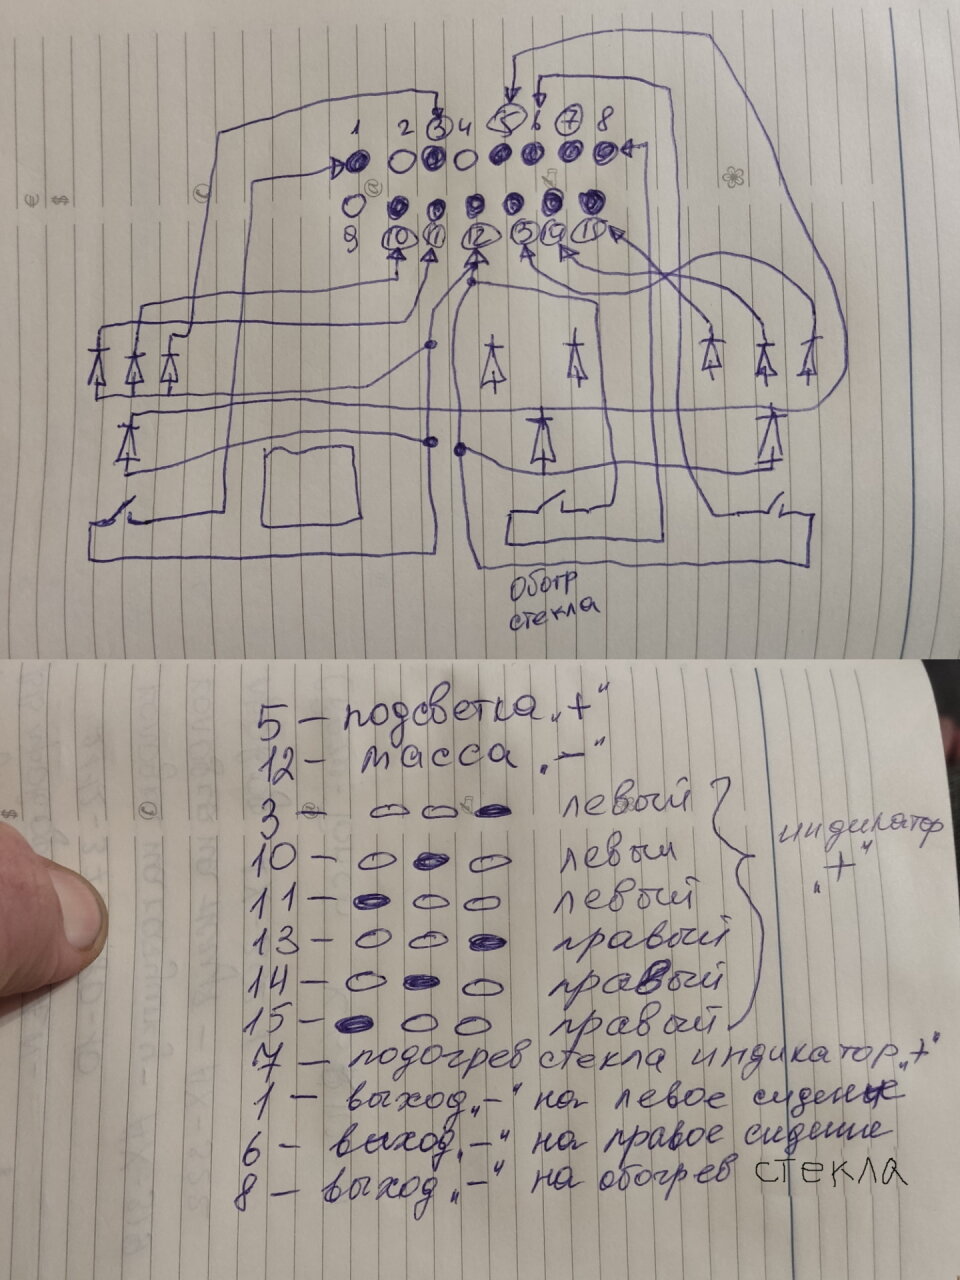 1 2 3 4 5 6 7 8
9 10 11 12 13 14 15
Обогр
стекла
5 – подсветка „+“
12 – масса „–“
3 – левый
10 – левый
11 – левый
13 – правый
14 – правый
15 – правый
индикатор
„+“
7 – подогрев стекла индикатор „+“
1 – выход „–“ на левое сиденье
6 – выход „–“ на правое сидение
8 – выход „–“ на обогрев стекла